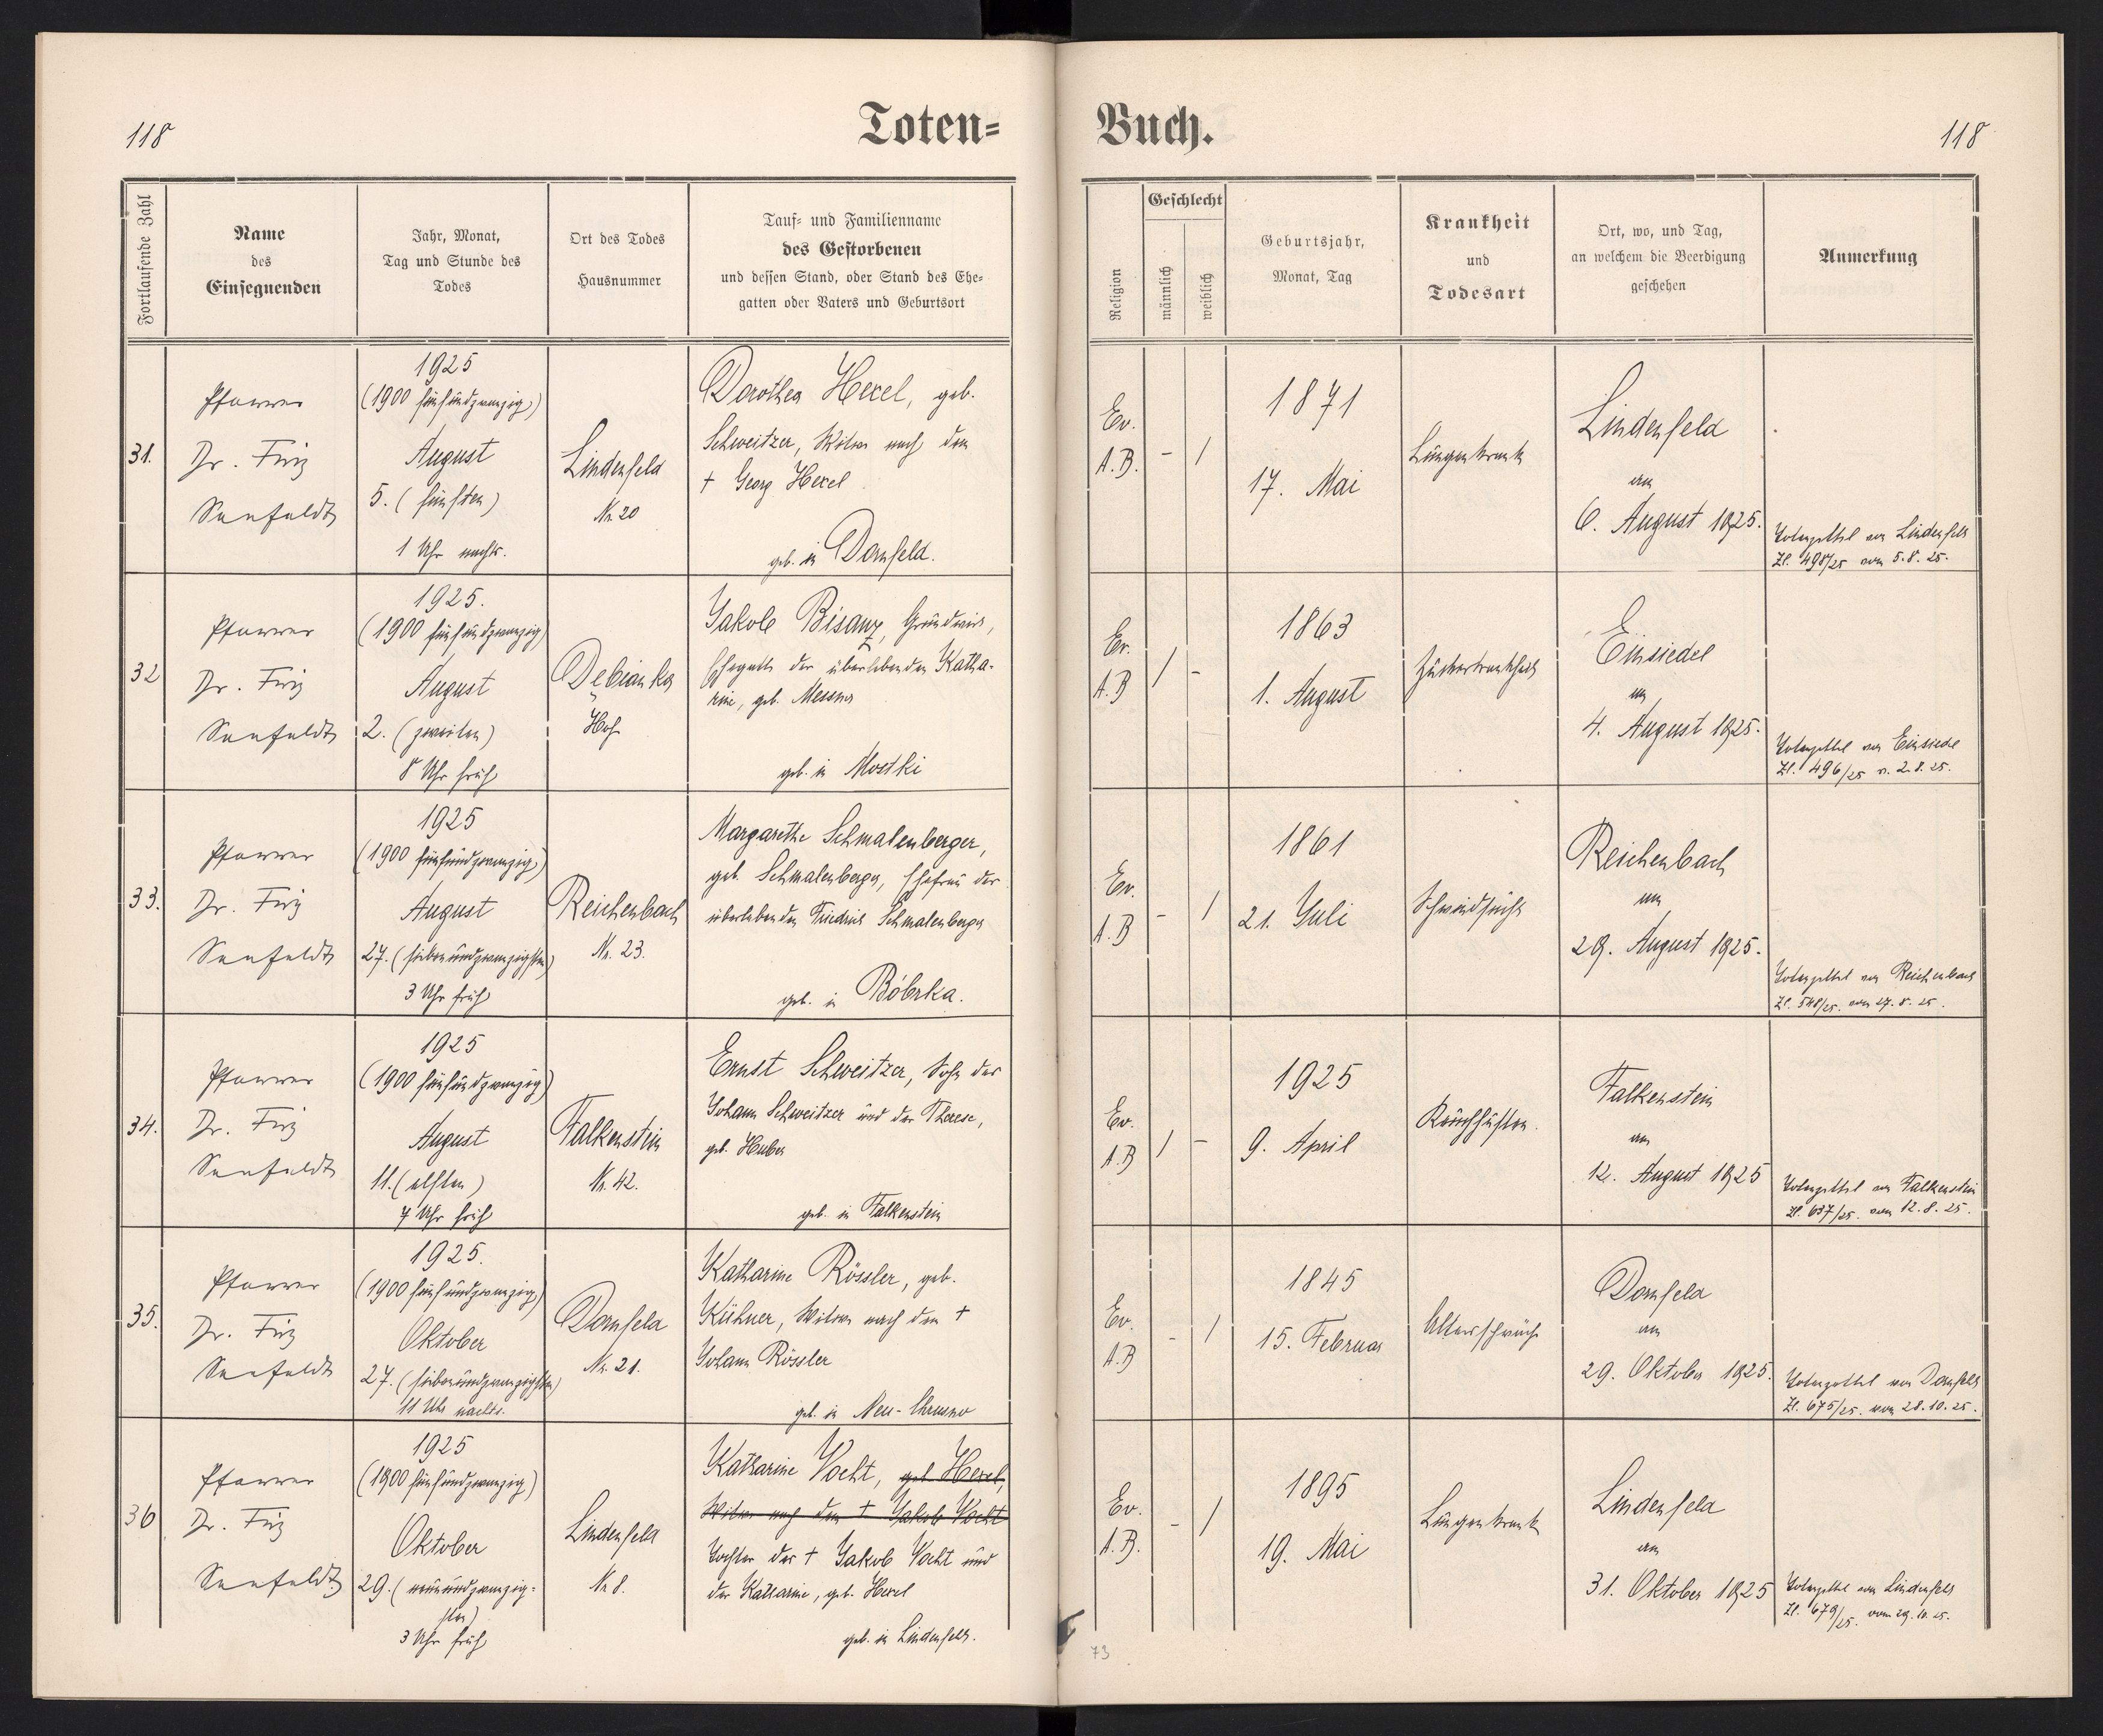 118
Toten=
Buch.
118
Fortlaufende Zahl
Name
des
Einsegnenden
Jahr, Monat,
Tag und Stunde des
Todes
Ort des Todes
Hausnummer
Tauf= und Familienname
des Gestorbenen
und dessen Stand, oder Stand des Ehe=
gatten oder Vaters und Geburtsort
Religion
Geschlecht
männlich
weiblich
Geburtsjahr,
Monat, Tag
Krankheit
und
Todesart
Ort, wo, und Tag,
an welchem die Beerdigung
geschehen
Anmerkung
31.
Pfarrer
Dr. Fritz
Seefeldt
1925
(1900 fünfundzwanzig)
August
5. (fünften)
1 Uhr nachts.
Lindenfeld
Nr. 20
Dorothea Hexel, geb.
Schweitzer, Witwe nach dem
† Georg Hexel
geb. in Dornfeld.
Ev.
A.B.
- /
1871
17. Mai
Lungenkrank
Lindenfeld
am
6. August 1925.
Totenzettel von Lindenfeld
Zl. 498/25 vom 5.8.25.
32
Pfarrer
Dr. Fritz
Seefeldt
1925.
(1900 fünfundzwanzig)
August
2. (zweiten)
8 Uhr früh
Debianka
Hof
Jakob Bisanz, Grundwirt,
Ehegatte der überlebenden Katha-
rine, geb. Messner
geb. in Mostki
Ev.
A.B
/ -
1863
1. August
Zuckerkrankheit
Einsiedel
am
4. August 1925.
Totenzettel von Einsiedel
Zl. 496/25 v. 2.8.25.
33.
Pfarrer
Dr. Fritz
Seefeldt
1925
(1900 fünfundzwanzig)
August
27. (siebenundzwanzigsten)
3 Uhr früh
Reichenbach
Nr. 23.
Margarethe Schmalenberger,
geb. Schmalenberger, Ehefrau des
überlebenden Friedrich Schmalenberger
geb. in Bóbrka.
Ev.
A.B
- /
1861
21. Juli
Schwindsucht
Reichenbach
am
29. August 1925.
Totenzettel von Reichenbach
Zl. 548/25. vom 27.8.25.
34.
Pfarrer
Dr. Fritz
Seefeldt
1925
(1900 fünfundzwanzig)
August
11. (elften)
7 Uhr früh
Falkenstein
Nr. 42.
Ernst Schweitzer, Sohn des
Johann Schweitzer und der Therese,
geb. Huber
geb. in Falkenstein
Ev.
A.B
/ -
1925
9. April
Keuchhusten.
Falkenstein
am
12. August 1925
Totenzettel von Falkenstein
Zl. 637/25. vom 12.8.25.
35.
Pfarrer
Dr. Fritz
Seefeldt
1925.
(1900 fünfundzwanzig)
Oktober
27. (siebenundzwanzigsten)
11 Uhr nachts.
Dornfeld
Nr. 21.
Katharine Rössler, geb.
Kühner, Witwe nach dem †
Johann Rössler
geb. in Neu-Chrusno
Ev.
A.B
- /
1845
15. Februar
Altersschwäche
Dornfeld
am
29. Oktober 1925.
Totenzettel von Dornfeld
Zl. 675/25. vom 28.10.25.
36
Pfarrer
Dr. Fritz
Seefeldt
1925
(1900 fünfundzwanzig)
Oktober
29. (neunundzwanzig-
sten)
3 Uhr früh
Lindenfeld
Nr. 8.
Katharine Vocht, geb. Hexel,
Witwe nach dem † Jakob Vocht
Tochter des † Jakob Vocht und
der Katharine, geb. Hexel
geb. in Lindenfeld.
Ev.
A.B.
- /
1895
19. Mai
Lungenkrank
Lindenfeld
am
31. Oktober 1925
Totenzettel von Lindenfeld
Zl. 679/25. vom 29.10.25.
73